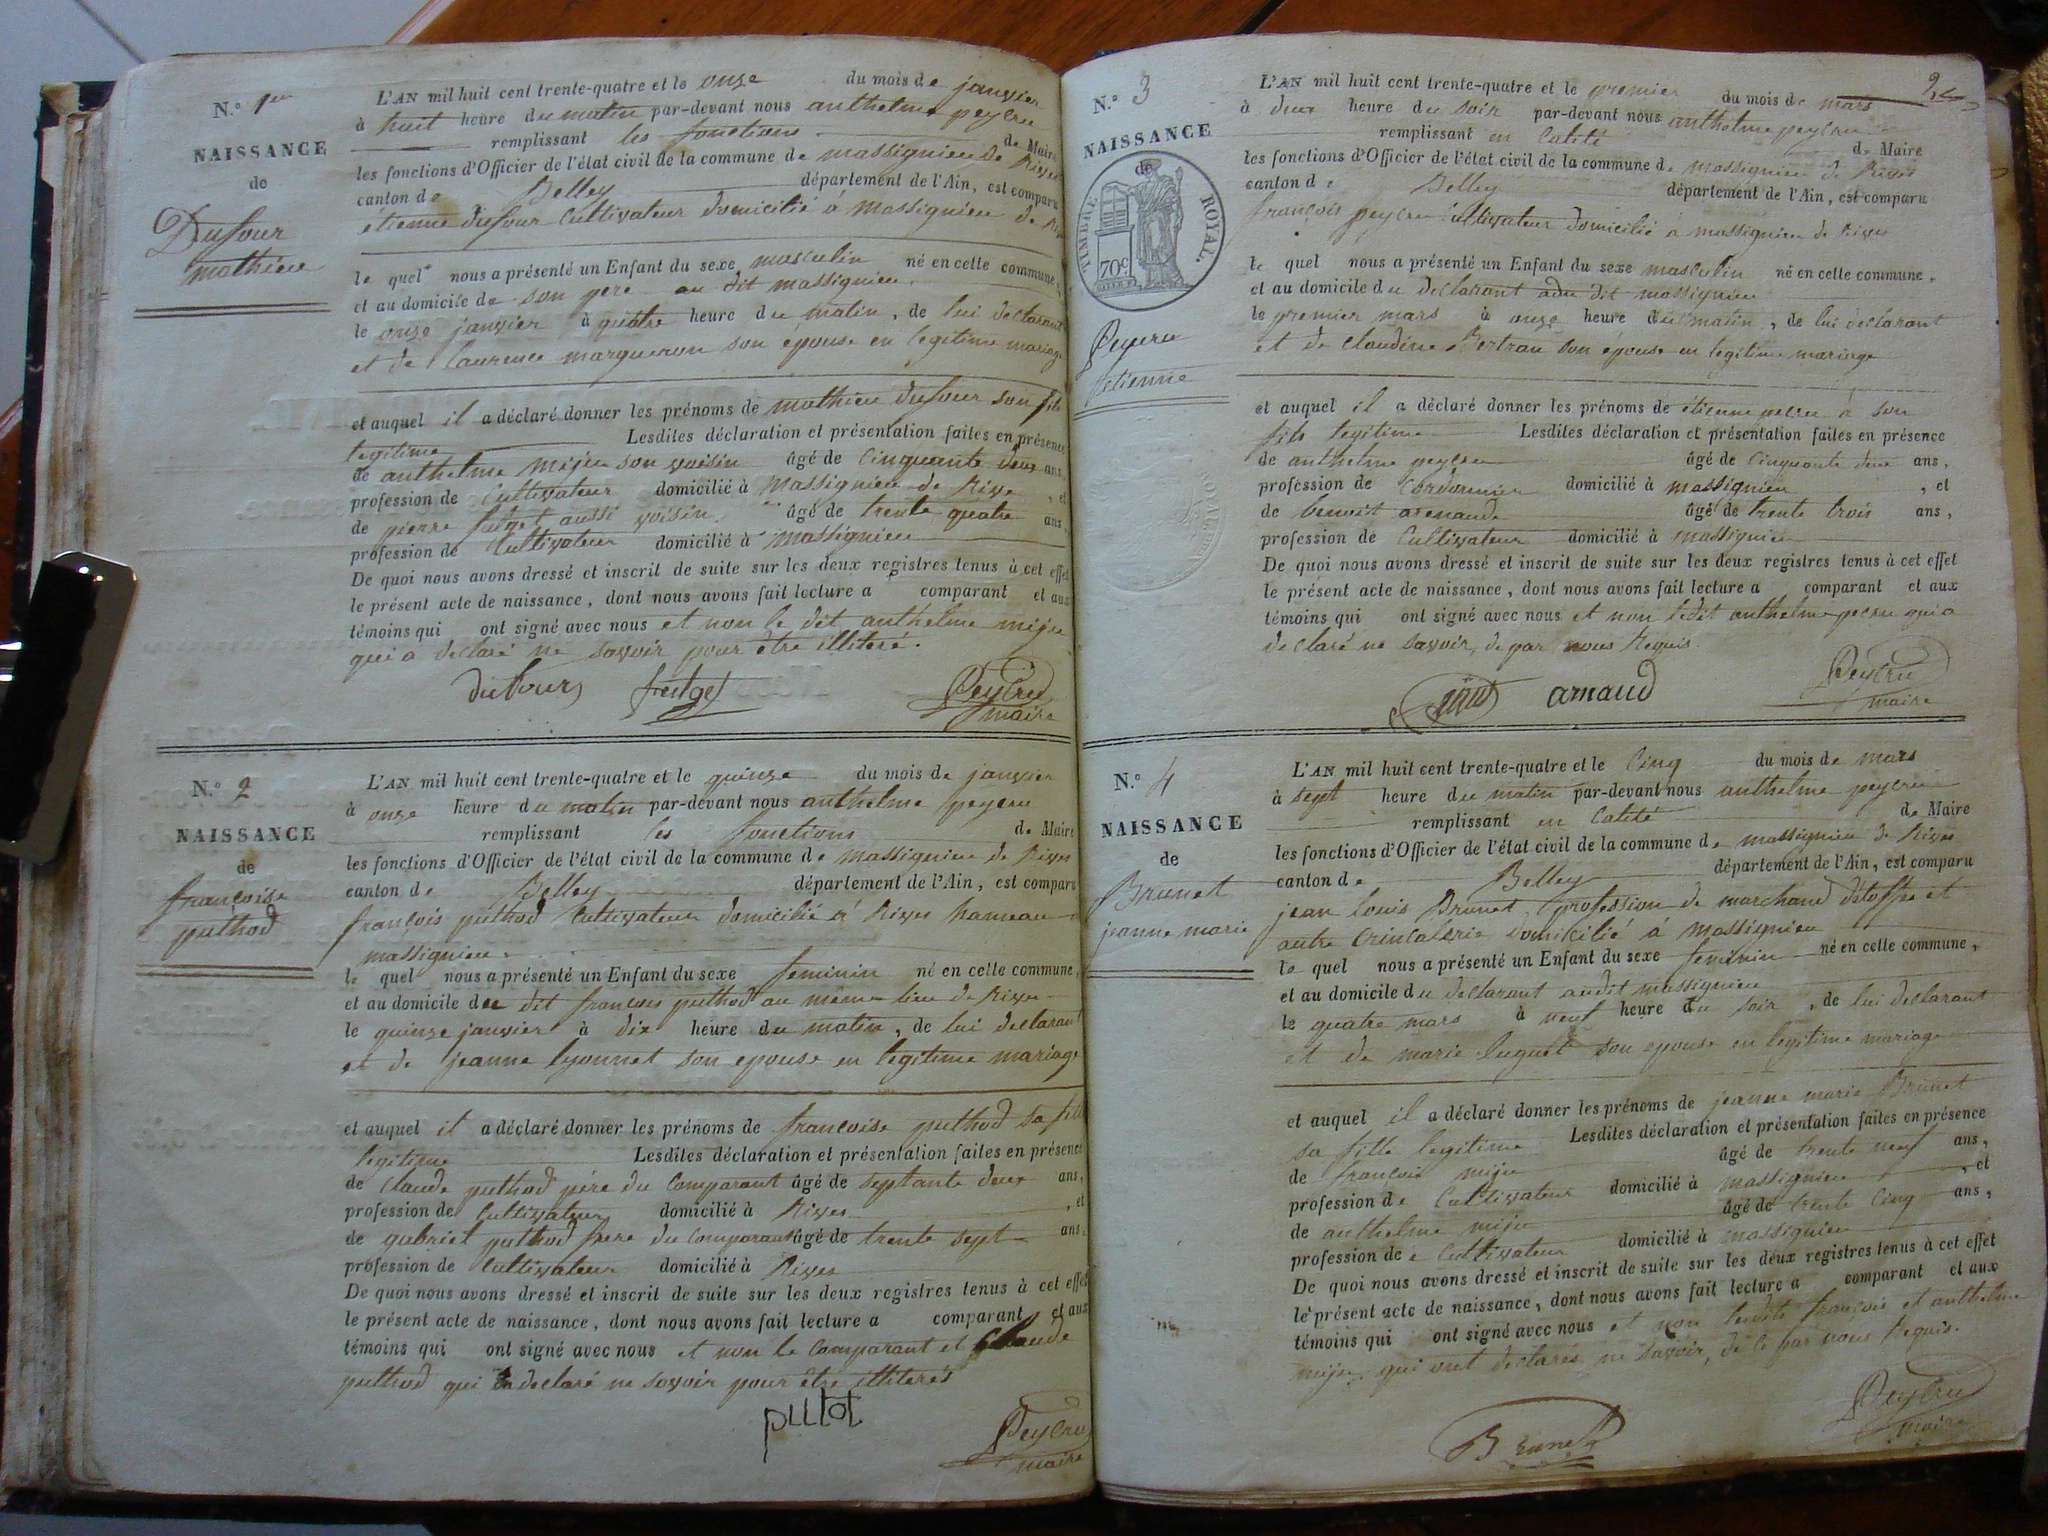 N.º 1er
NAISSANCE
de
Dufour
mathieu
L'AN mil huit cent trente-quatre et le onze du mois de janvier
à huit heure du matin par-devant nous anthelme peycru
remplissant les fonctions de Maire
les fonctions d'Officier de l'état civil de la commune de massignieu de Rives
canton de Belley département de l'Ain, est comparu
étienne dufour Cultivateur domicilié à massignieu de
le quel nous a présenté un Enfant du sexe masculin né en cette commune,
et au domicile de son père au dit massignieu
le onze janvier à quatre heure du matin, de lui déclarant
et de laurence margueron son épouse en legitime mariage
et auquel il a déclaré donner les prénoms de mathieu dufour son fils
legitime Lesdites déclaration et présentation faites en présence
de anthelme miju son voisin âgé de cinquante deux ans,
profession de Cultivateur domicilié à massignieu de Rive, et
de pierre aussi voisin âgé de trente quatre ans,
profession de Cultivateur domicilié à massignieu
De quoi nous avons dressé et inscrit de suite sur les deux registres tenus à cet effet
le présent acte de naissance, dont nous avons fait lecture a comparant et aux
témoins qui ont signé avec nous et non le dit anthelme miju
qui a declaré ne savoir pour être illiteré.
dufour Peycru
maire
N.º 2
NAISSANCE
de
françoise
puthod
L'AN mil huit cent trente-quatre et le quinze du mois de janvier
à onze heure du matin par-devant nous anthelme peycru
remplissant les fonctions de Maire
les fonctions d'Officier de l'état civil de la commune de massignieu de Rives
canton de Belley département de l'Ain, est comparu
françois puthod Cultivateur domicilié à Rives hameau
massignieu
le quel nous a présenté un Enfant du sexe feminin né en cette commune,
et au domicile du dit françois puthod au même lieu de Rives
le quinze janvier à dix heure du matin, de lui declarant
et de jeanne lyonnet son epouse en legitime mariage
et auquel il a déclaré donner les prénoms de françoise puthod sa fille
legitime Lesdites déclaration et présentation faites en présence
de Claude puthod père du Comparant âgé de septante deux ans,
profession de Cultivateur domicilié à Rives, et
de gabriel puthod frere du comparant âgé de trente sept ans,
profession de Cultivateur domicilié à Rives
De quoi nous avons dressé et inscrit de suite sur les deux registres tenus à cet effet
le présent acte de naissance, dont nous avons fait lecture a comparant et aux
témoins qui ont signé avec nous et non le Comparant et Claude
puthod qui declaré ne savoir pour être illiterés
putot
Peycru
maire
N.º 3
NAISSANCE
de
TIMBRE ROYAL
70c
Peycru
étienne
L'AN mil huit cent trente-quatre et le premier du mois de mars
à deux heure du soir par-devant nous anthelme peycru
remplissant en Calité de Maire
les fonctions d'Officier de l'état civil de la commune de massignieu de Rives
canton de Belley département de l'Ain, est comparu
françois peycru Cultivateur domicilié à massignieu de Rives
le quel nous a présenté un Enfant du sexe masculin né en cette commune,
et au domicile du declarant au dit massignieu
le premier mars à onze heure du matin, de lui declarant
et de claudine Bertrau son épouse en legitime mariage
et auquel il a déclaré donner les prénoms de étienne peycru à son
fils legitime Lesdites déclaration et présentation faites en présence
de anthelme peycru âgé de cinquante deux ans,
profession de Cordonnier domicilié à massignieu, et
de benoit arenaude âgé de trente trois ans,
profession de Cultivateur domicilié à massignieu
De quoi nous avons dressé et inscrit de suite sur les deux registres tenus à cet effet
le présent acte de naissance, dont nous avons fait lecture a comparant et aux
témoins qui ont signé avec nous et non ledit anthelme peycru qui a
declaré ne savoir, de par nous Requis.
arnaud Peycru
maire
N.º 4
NAISSANCE
de
Brunet
jeanne marie
L'AN mil huit cent trente-quatre et le Cinq du mois de mars
à sept heure du matin par-devant nous anthelme peycru
remplissant en Calité de Maire
les fonctions d'Officier de l'état civil de la commune de massignieu de Rives
canton de Belley département de l'Ain, est comparu
jean louis Brunet, profession de marchand d'étoffe et
autre domicilié à massignieu
le quel nous a présenté un Enfant du sexe feminin né en cette commune,
et au domicile du declarant audit massignieu
le quatre mars à neuf heure du soir, de lui declarant
et de marie luguet son epouse en legitime mariage
et auquel il a déclaré donner les prénoms de jeanne marie Brunet
sa fille legitime Lesdites déclaration et présentation faites en présence
de françois miju âgé de trente neuf ans,
profession de Cultivateur domicilié à massignieu, et
de anthelme miju âgé de trente cinq ans,
profession de Cultivateur domicilié à massignieu
De quoi nous avons dressé et inscrit de suite sur les deux registres tenus à cet effet
le présent acte de naissance, dont nous avons fait lecture a comparant et aux
témoins qui ont signé avec nous et non lesdits françois et anthelme
miju qui ont declarés ne savoir, de ce par nous Requis.
Brunet
Peycru
maire